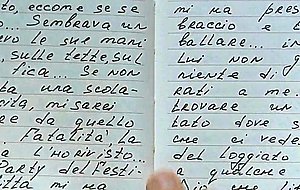 to, eccome se se
. Sembrava un
evo le sue mani
, sulle tette, sul
fica... Se non
ta una scola-
cita, mi sarei
re da quello
. Fatalità, la
. L'HORIVISTO...
Party del Festi-
itta mi ha
mi ha pres
braccio e
ballare... in
Lui non g
niente di
rati a me.
trovare un
lato dove s
che ci vede
del loggiato
a qualche